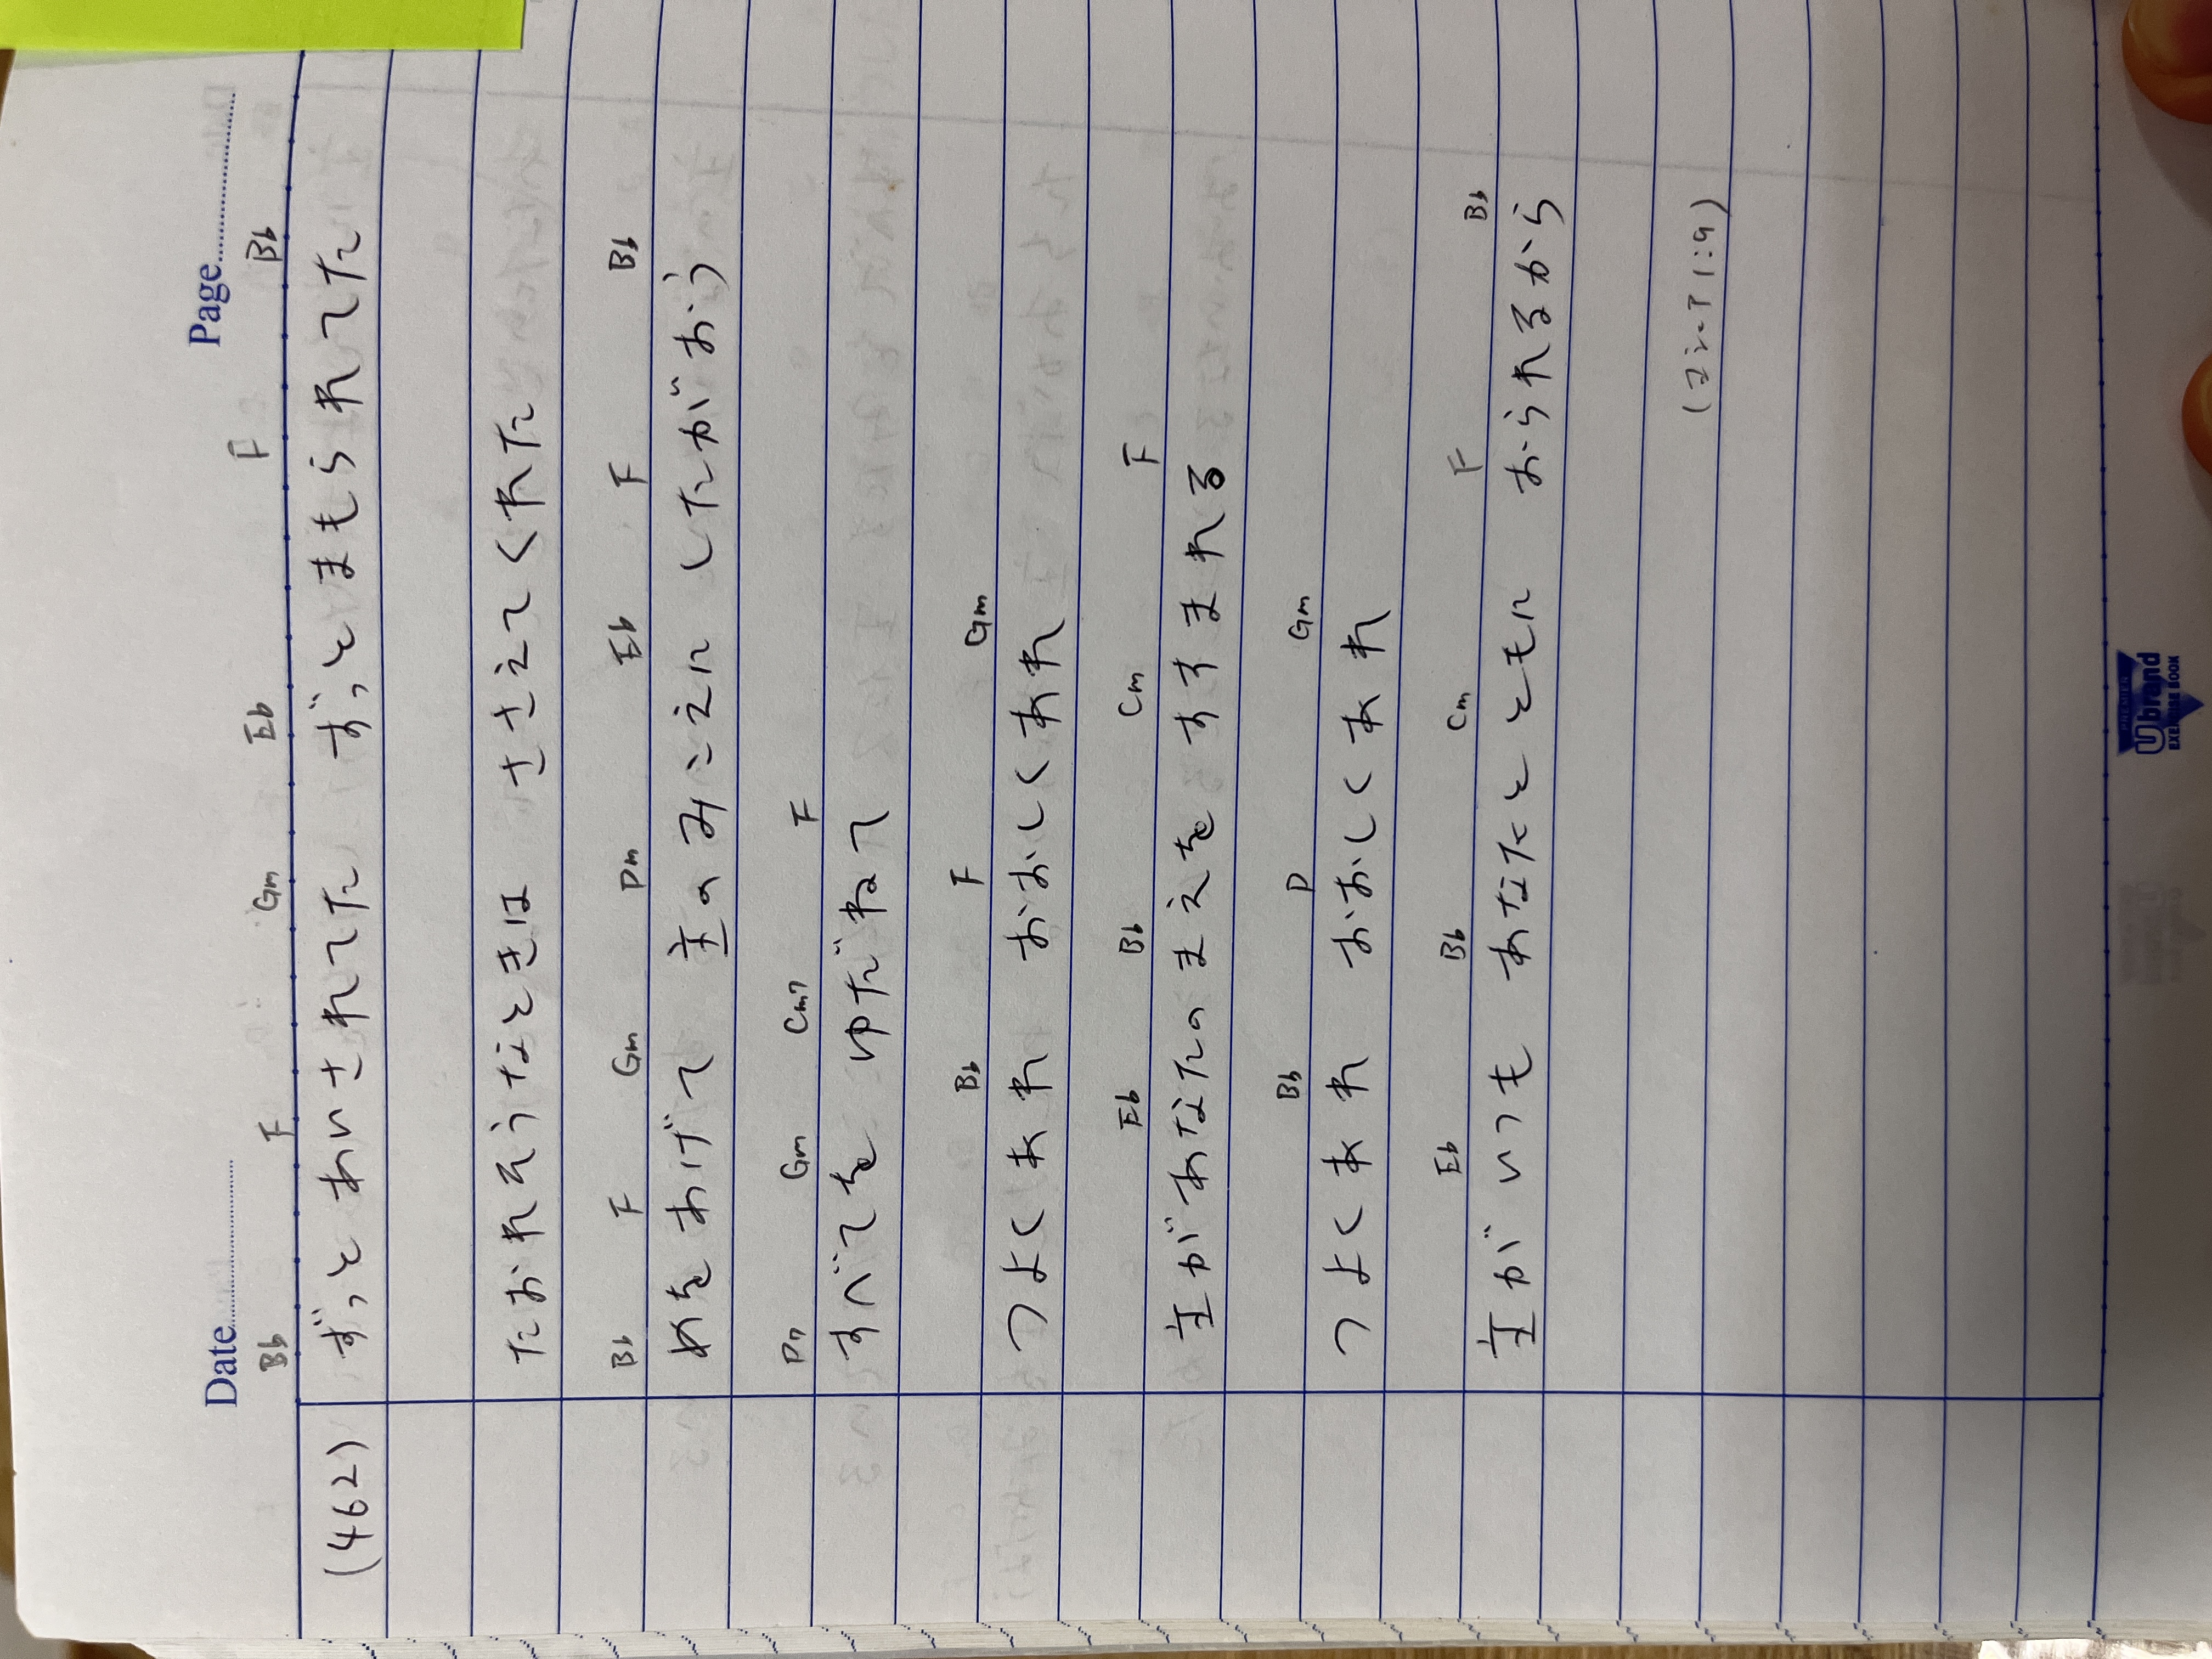 Date Page
Bb F Gm Eb F Bb
(462) ずっとあいされてた ずっとまもられてた
たおれそうなときは ささえてくれた
Bb F Gm Dm Eb F Bb
めをあげて 主のみこえに したがおう
Dm Gm Cm7 F
すべてを ゆだねて
Bb F Gm
つよくあれ おおしくあれ
Eb Bb Cm F
主があなたのまえを すすまれる
Bb D Gm
つよくあれ おおしくあれ
Eb Bb Cm F Bb
主がいつも あなたとともに おられるから
(ヨシュア 1:9)
PREMIER
Ubrand
EXERCISE BOOK